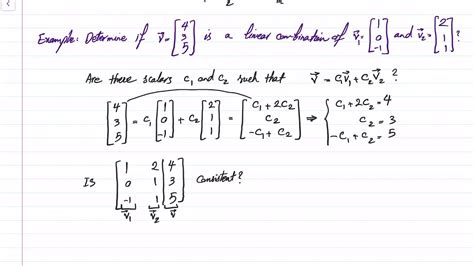 Example: Determine if v⃗ = [4 3 5] is a linear combination of v⃗₁ = [1 0 -1] and v⃗₂ = [2 1 1]?
Are there scalars c₁ and c₂ such that v⃗ = c₁v⃗₁ + c₂v⃗₂ ?
[4 3 5] = c₁ [1 0 -1] + c₂ [2 1 1] = [c₁ + 2c₂ c₂ -c₁ + c₂] ⇒ { c₁ + 2c₂ = 4
c₂ = 3
-c₁ + c₂ = 5
Is [1 2 | 4
0 1 | 3
-1 1 | 5] consistent?
v⃗₁ v⃗₂ v⃗